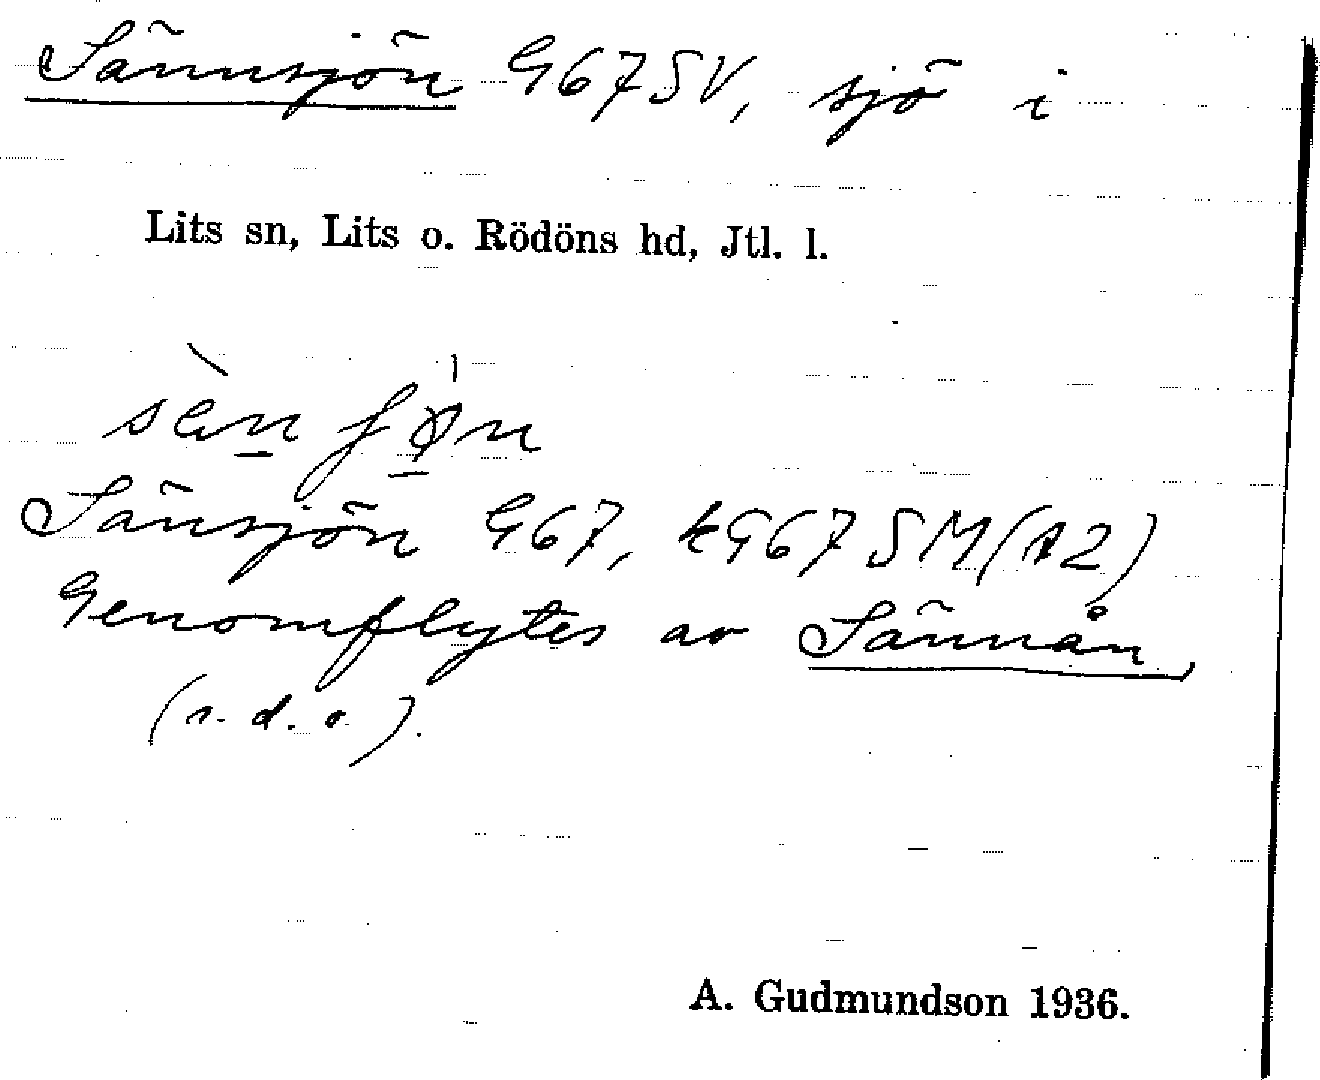 Sännsjön G67SV, sjö i
Lits sn, Lits o. Rödöns hd, Jtl. l.
Sänsjön G67, kG67SM(A2)
Genomflytes av Sännån,
(s. d. o.).
A. Gudmundson 1936.